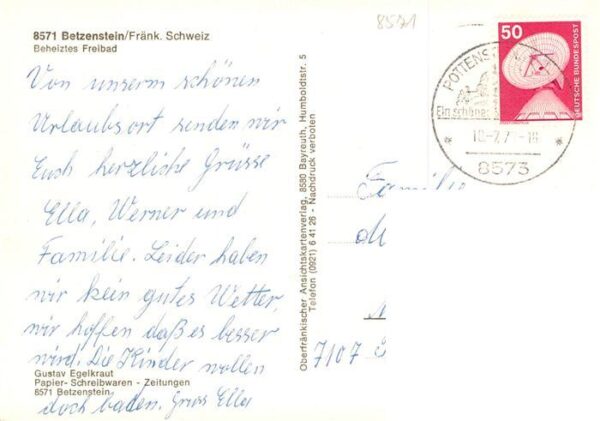 8571 Betzenstein/Fränk. Schweiz
Beheiztes Freibad
Von unserm schönen
Urlaubsort senden wir
Euch herzliche Grüsse
Ella, Werner und
Familie. Leider haben
wir kein gutes Wetter,
wir hoffen daß es besser
wird. Die Kinder wollen
doch baden. Gruss Ella
Gustav Egelkraut
Papier- Schreibwaren - Zeitungen
8571 Betzenstein
Oberfränkischer Ansichtskartenverlag, 8580 Bayreuth, Humboldtstr. 5
Telefon (0921) 6 41 26 - Nachdruck verboten
8571
50
DEUTSCHE BUNDESPOST
POTTENS
Ein schönes
8573
Familie
7107